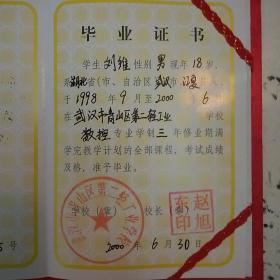 毕业证书
学生刘维性别男现年18岁,
系湖北省(市、自治区)武汉市 人,
于1998年9月至2000年6
在武汉市青山区第二轻工业学校
数控专业学制三年修业期满
学完教学计划的全部课程,考试成绩
及格,准予毕业。
学校(章) 校长(章)
赵旭东印
2000年6月30日
5号